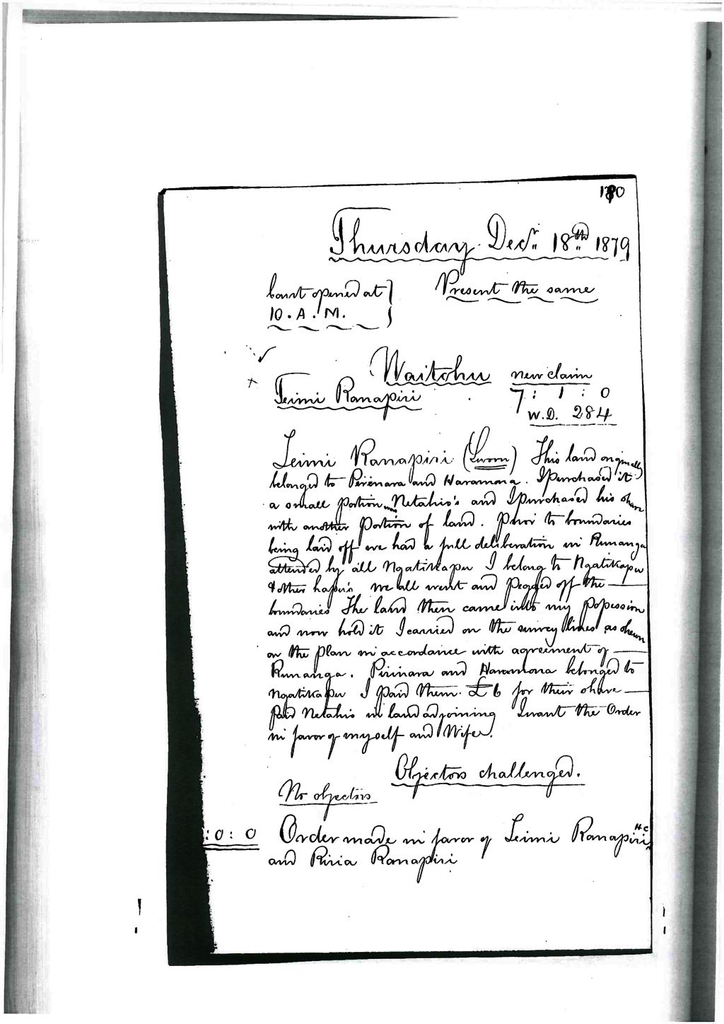 180
Thursday Decr. 18th 1879
Court opened at
10. A. M.
Present the same
Waitohu new claim
Teimi Ranapiri
7 : 1 : 0
W.D. 284
Teimi Ranapiri (Sworn) This land originally
belonged to Pirenara and Haramona. I purchased it
a small portion was Netahio's and I purchased his share
with another portion of land. Prior to boundaries
being laid off we had a full deliberation in Runanga
attended by all Ngatikapu I belong to Ngatikapu
& other hapu's we all went and pegged off the
boundaries The land then came into my possession
and now hold it I carried on the survey lines as shewn
on the plan in accordance with agreement of
Runanga. Pirinara and Haramona belonged to
Ngatikapu I paid them £6 for their share
paid Netahio in land adjoining I want the Order
in favor of myself and Wife.
Objectors challenged.
No objectors
: 0 : 0 Order made in favor of Teimi Ranapiri H.C
and Piria Ranapiri